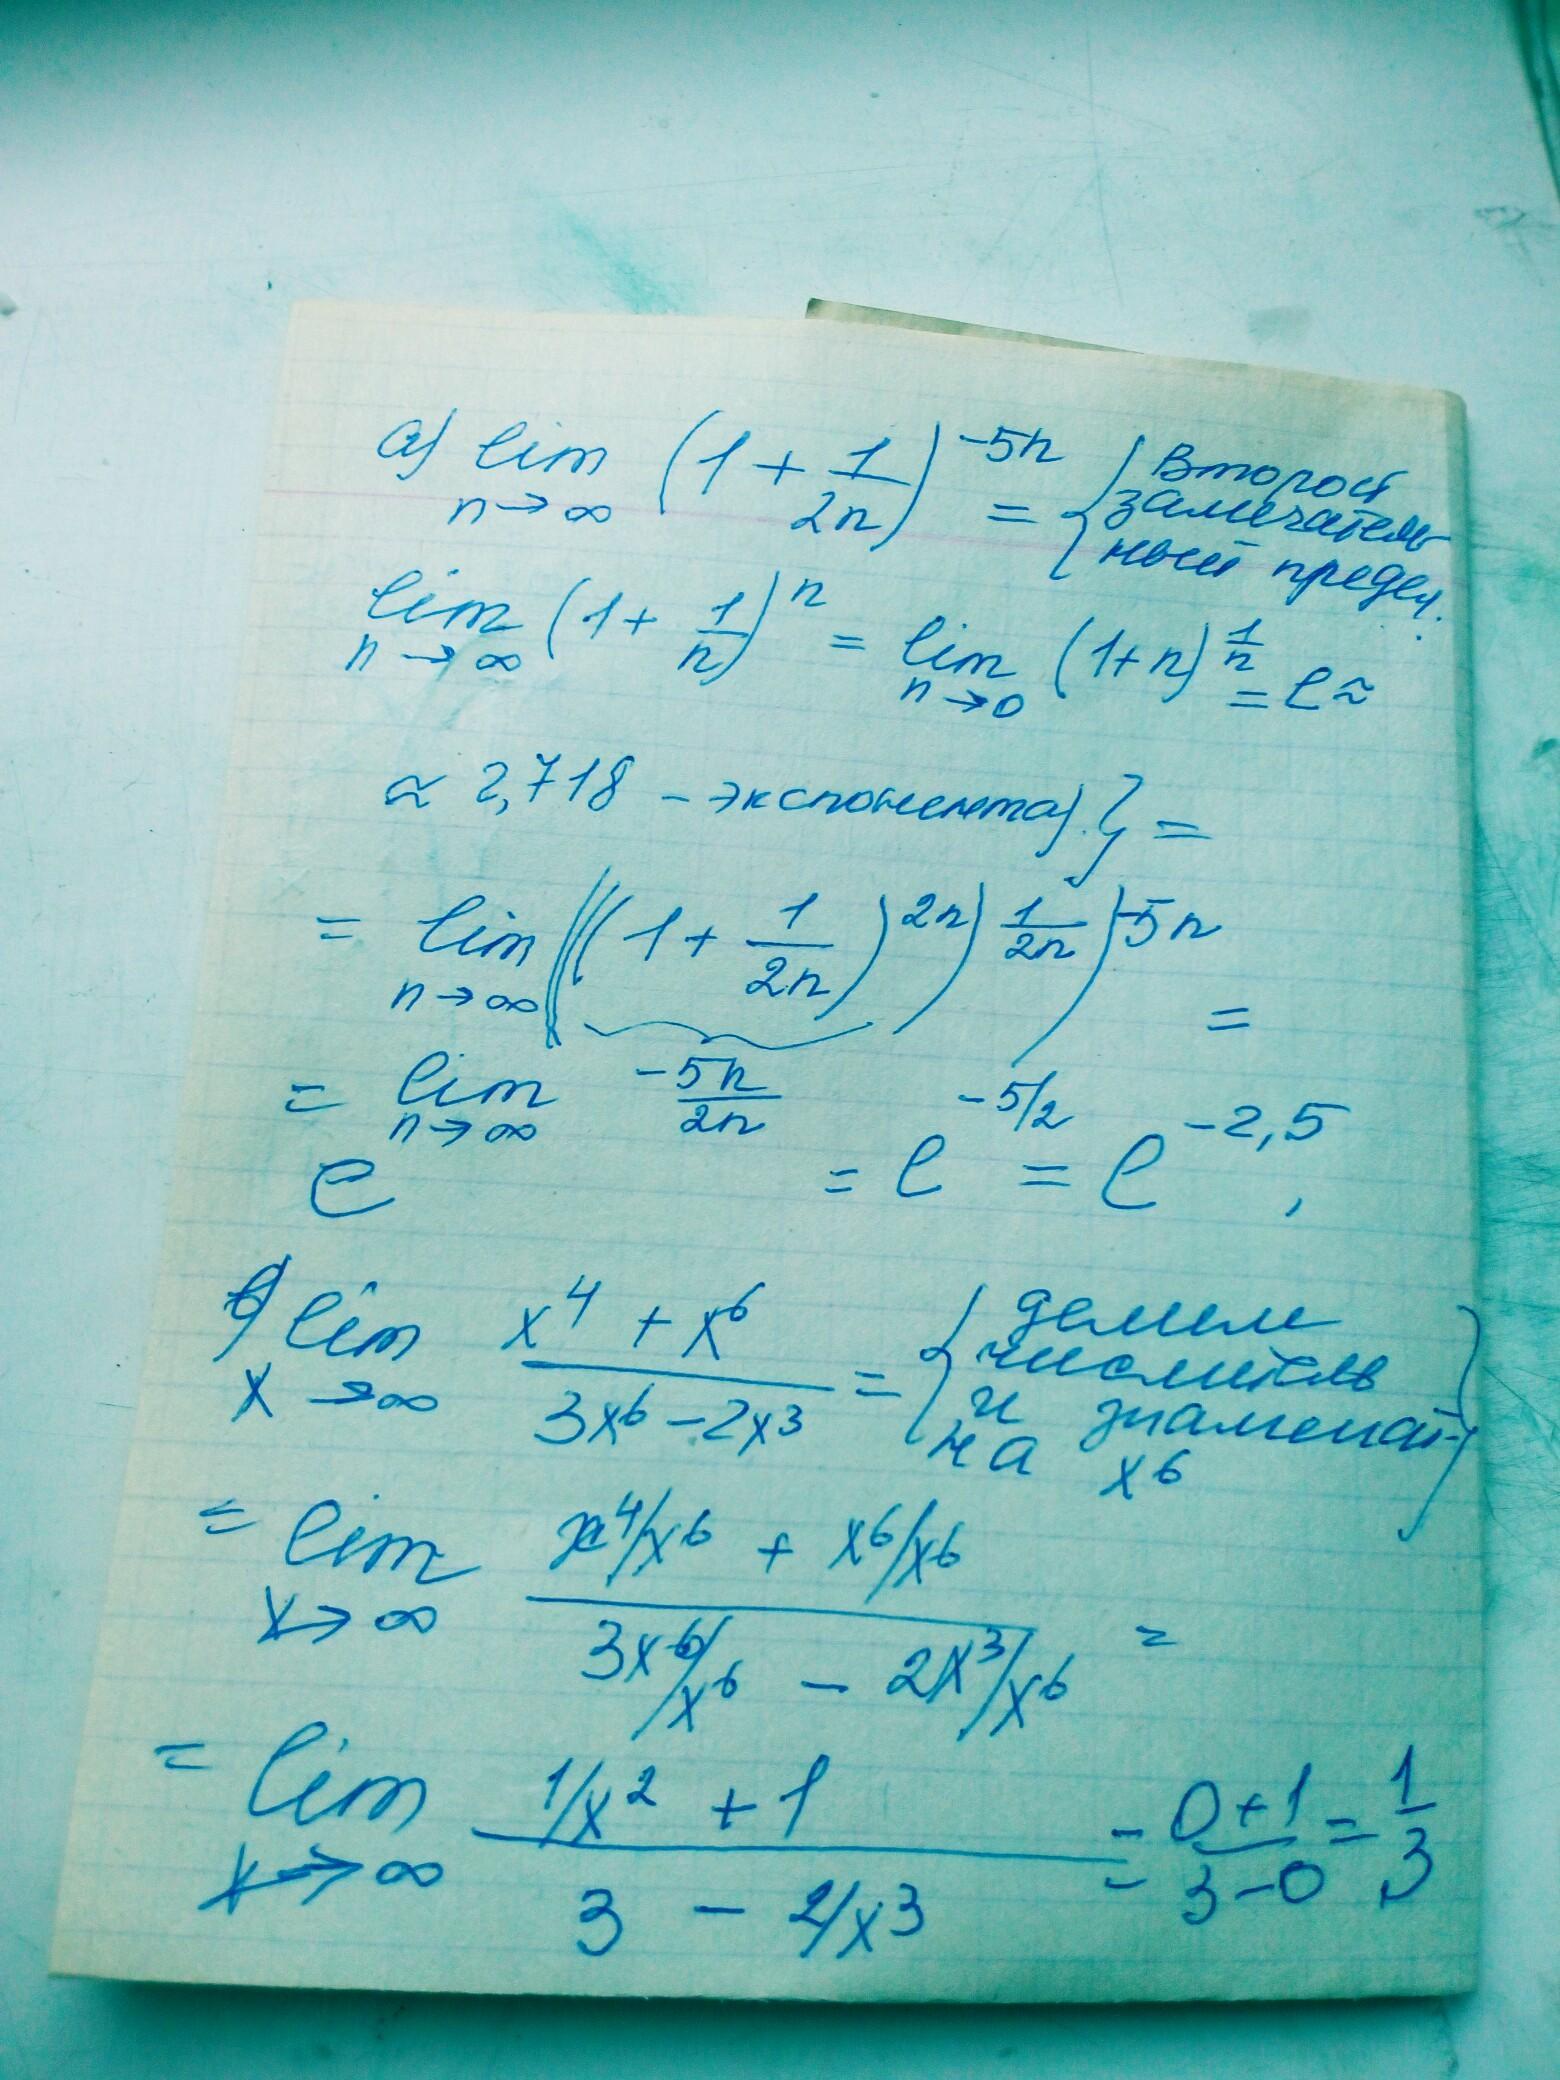 а) lim (1 + 1/2n)^-5n = { Второй
n→∞ замечатель-
ный предел:
lim (1 + 1/n)^n = lim (1+n)^1/n = e ≈
n→∞ n→0
≈ 2,718 – экспонента). } =
= lim (((1 + 1/2n)^2n)^1/2n)^-5n =
n→∞
= e^lim -5n/2n = e^-5/2 = e^-2,5 ,
n→∞
б) lim x^4 + x^6 / 3x^6 – 2x^3 = { делим
x→∞ числитель
и знаменат-
на x^6 }
= lim x^4/x^6 + x^6/x^6 / 3x^6/x^6 – 2x^3/x^6 =
x→∞
= lim 1/x^2 + 1 / 3 – 2/x^3 = 0+1 / 3–0 = 1/3
x→∞